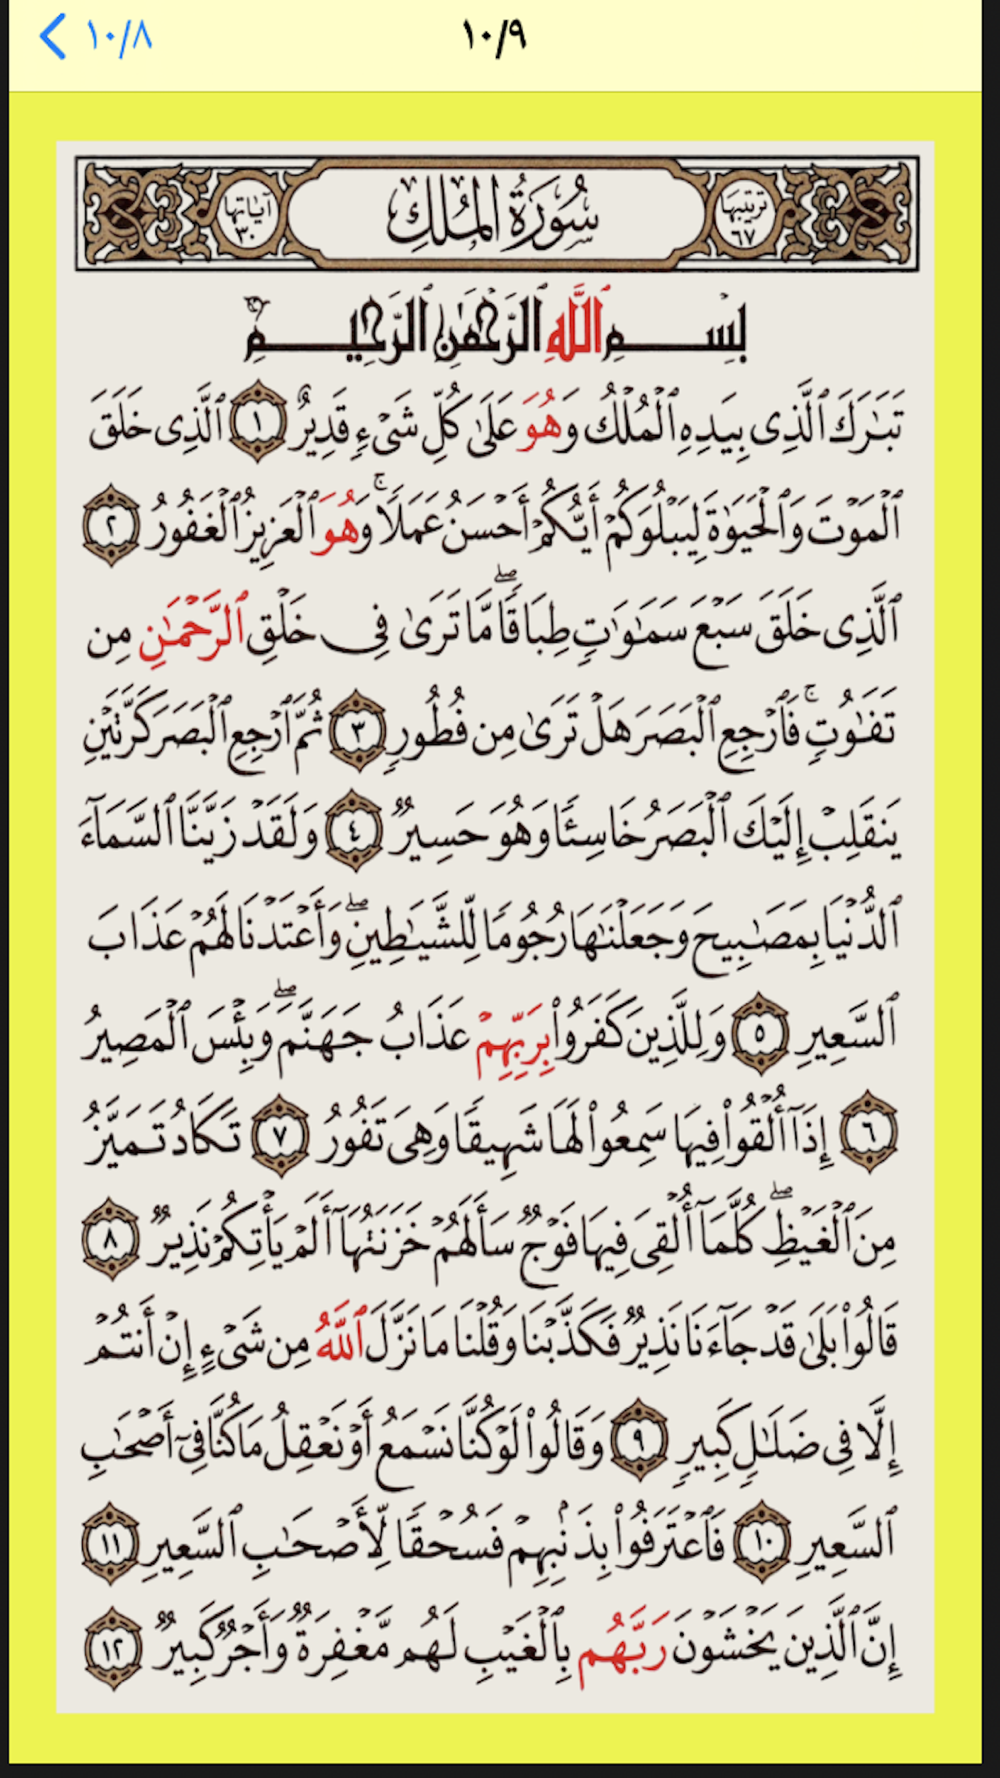 ١٠/٨
١٠/٩
ترتيبها ٦٧
سُورَةُ المُلكِ
آياتها ٣٠
بِسْمِ ٱللَّهِ ٱلرَّحْمَٰنِ ٱلرَّحِيمِ
تَبَٰرَكَ ٱلَّذِى بِيَدِهِ ٱلْمُلْكُ وَهُوَ عَلَىٰ كُلِّ شَىْءٍ قَدِيرٌ ١ ٱلَّذِى خَلَقَ
ٱلْمَوْتَ وَٱلْحَيَوٰةَ لِيَبْلُوَكُمْ أَيُّكُمْ أَحْسَنُ عَمَلًا ۚ وَهُوَ ٱلْعَزِيزُ ٱلْغَفُورُ ٢
ٱلَّذِى خَلَقَ سَبْعَ سَمَٰوَٰتٍ طِبَاقًا ۖ مَّا تَرَىٰ فِى خَلْقِ ٱلرَّحْمَٰنِ مِن
تَفَٰوُتٍ ۚ فَٱرْجِعِ ٱلْبَصَرَ هَلْ تَرَىٰ مِن فُطُورٍ ٣ ثُمَّ ٱرْجِعِ ٱلْبَصَرَ كَرَّتَيْنِ
يَنقَلِبْ إِلَيْكَ ٱلْبَصَرُ خَاسِئًا وَهُوَ حَسِيرٌ ٤ وَلَقَدْ زَيَّنَّا ٱلسَّمَآءَ
ٱلدُّنْيَا بِمَصَٰبِيحَ وَجَعَلْنَٰهَا رُجُومًا لِّلشَّيَٰطِينِ ۖ وَأَعْتَدْنَا لَهُمْ عَذَابَ
ٱلسَّعِيرِ ٥ وَلِلَّذِينَ كَفَرُوا۟ بِرَبِّهِمْ عَذَابُ جَهَنَّمَ ۖ وَبِئْسَ ٱلْمَصِيرُ
٦ إِذَآ أُلْقُوا۟ فِيهَا سَمِعُوا۟ لَهَا شَهِيقًا وَهِىَ تَفُورُ ٧ تَكَادُ تَمَيَّزُ
مِنَ ٱلْغَيْظِ ۖ كُلَّمَآ أُلْقِىَ فِيهَا فَوْجٌ سَأَلَهُمْ خَزَنَتُهَآ أَلَمْ يَأْتِكُمْ نَذِيرٌ ٨
قَالُوا۟ بَلَىٰ قَدْ جَآءَنَا نَذِيرٌ فَكَذَّبْنَا وَقُلْنَا مَا نَزَّلَ ٱللَّهُ مِن شَىْءٍ إِنْ أَنتُمْ
إِلَّا فِى ضَلَٰلٍ كَبِيرٍ ٩ وَقَالُوا۟ لَوْ كُنَّا نَسْمَعُ أَوْ نَعْقِلُ مَا كُنَّا فِىٓ أَصْحَٰبِ
ٱلسَّعِيرِ ١٠ فَٱعْتَرَفُوا۟ بِذَنۢبِهِمْ فَسُحْقًا لِّأَصْحَٰبِ ٱلسَّعِيرِ ١١
إِنَّ ٱلَّذِينَ يَخْشَوْنَ رَبَّهُم بِٱلْغَيْبِ لَهُم مَّغْفِرَةٌ وَأَجْرٌ كَبِيرٌ ١٢